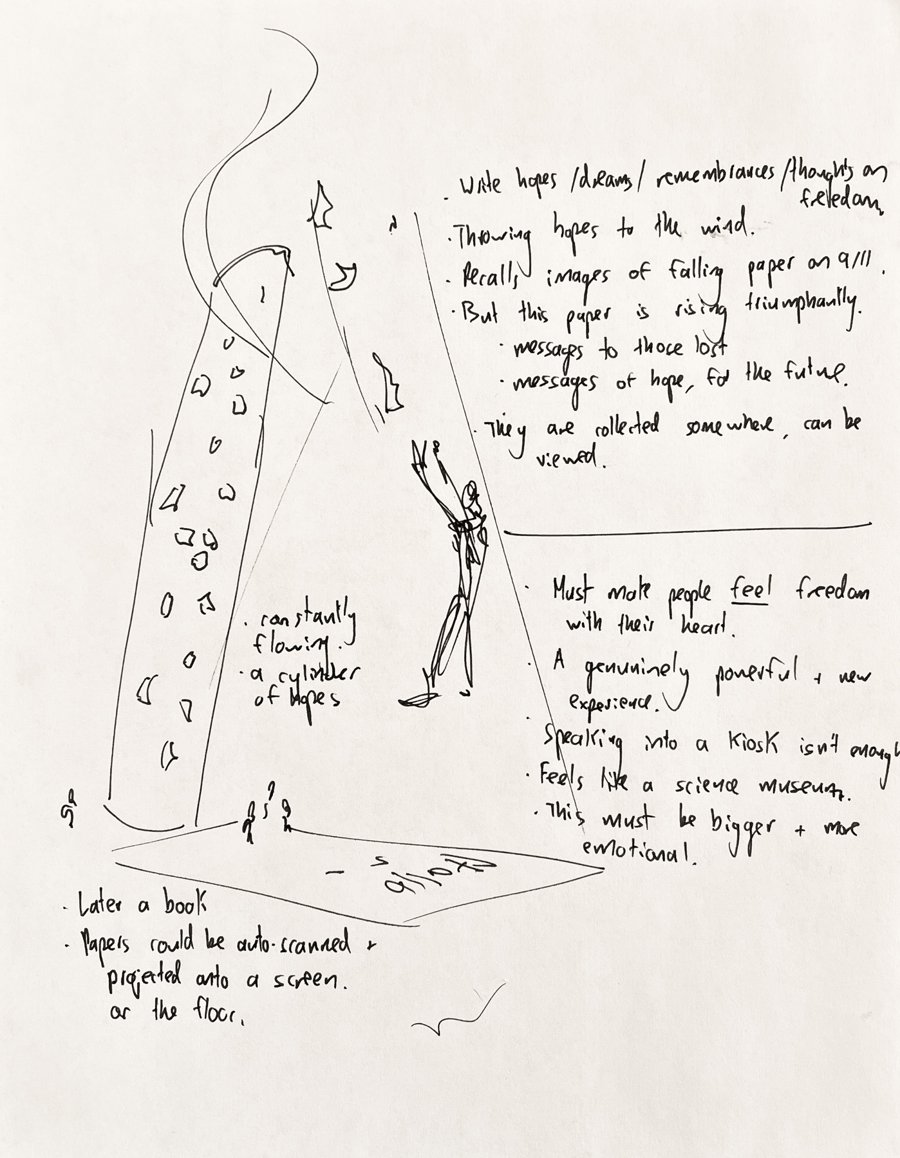 · Write hopes /dreams/ remembrances /thoughts on
freedom
· Throwing hopes to the wind.
· Recalls images of falling paper on 9/11.
· But this paper is rising triumphantly.
· messages to those lost
· messages of hope, for the future.
· They are collected somewhere, can be
viewed.
· Must make people feel freedom
with their heart.
· A genuninely powerful + new
experience.
· Speaking into a kiosk isn't enough
· Feels like a science museum.
· This must be bigger + more
emotional.
· constantly
flowing.
· a cylinder
of hopes
· Later a book
· Papers could be auto-scanned +
projected onto a screen.
or the floor.